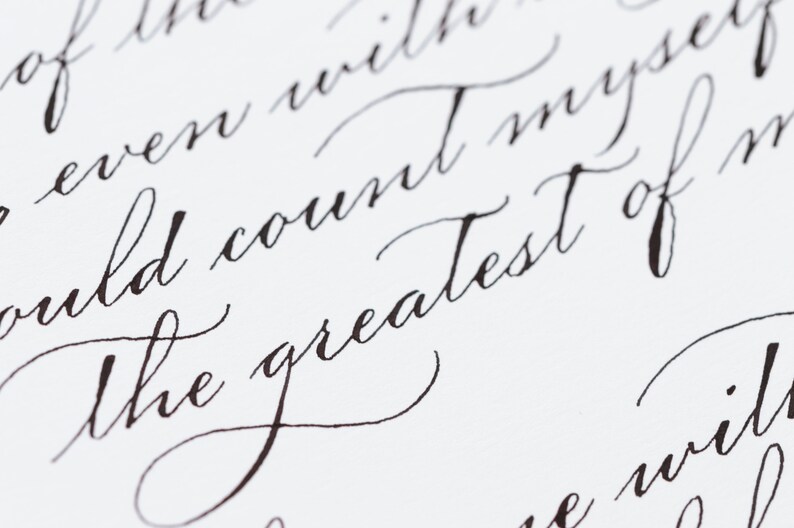 of the
even with
ould count myself
the greatest of m
e with